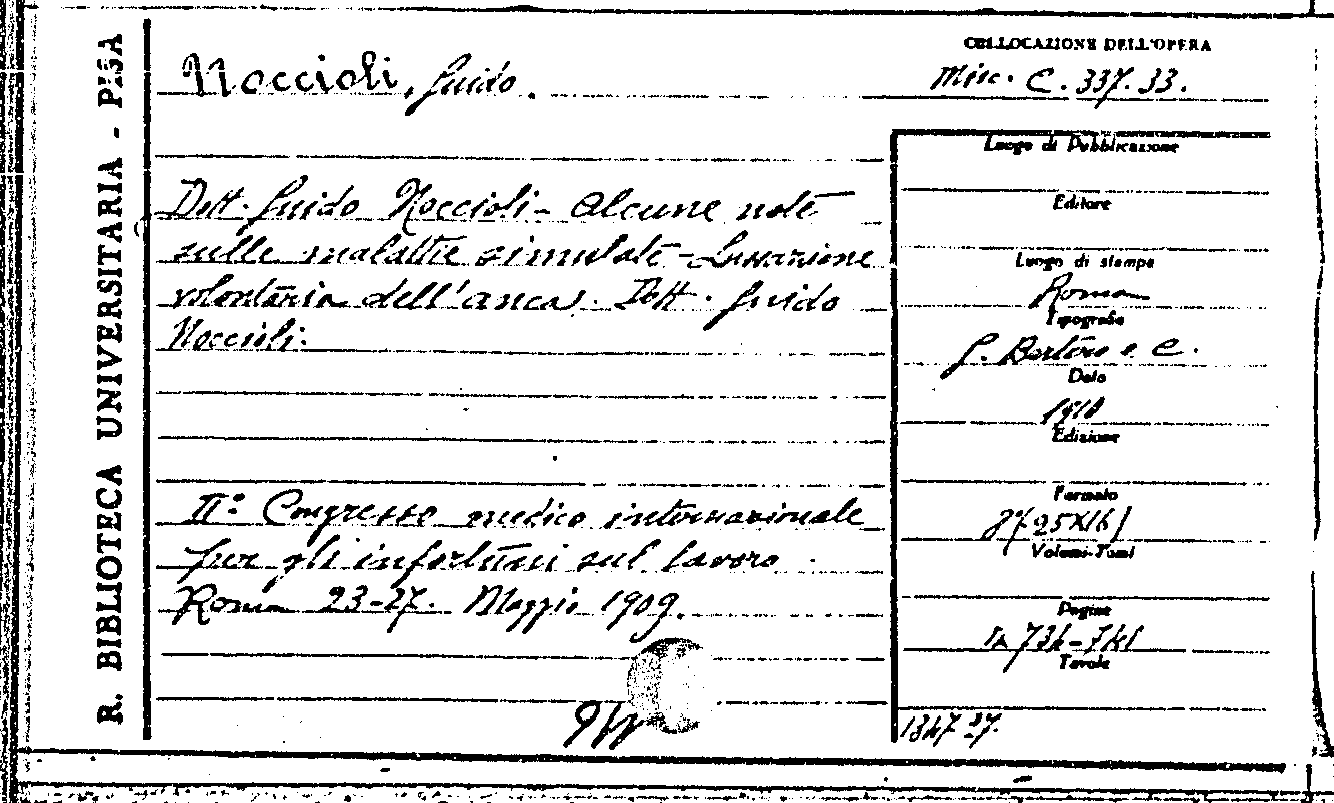 R. BIBLIOTECA UNIVERSITARIA - PISA
Noccioli, Guido.
COLLOCAZIONE DELL'OPERA
Misc. C. 337. 33.
Dott. Guido Noccioli - Alcune note
sulle malattie simulate - Lussazione
volontaria dell'anca. Dott. Guido
Noccioli.
IIº Congresso medico internazionale
per gli infortuni sul lavoro.
Roma 23-27. Maggio 1909.
Luogo di Pubblicazione
Editore
Luogo di stampa
Roma
Tipografia
G. Bertero e C.
Data
1910
Edizione
Formato
25X16
Volumi-Tomi
Pagine
Tavole